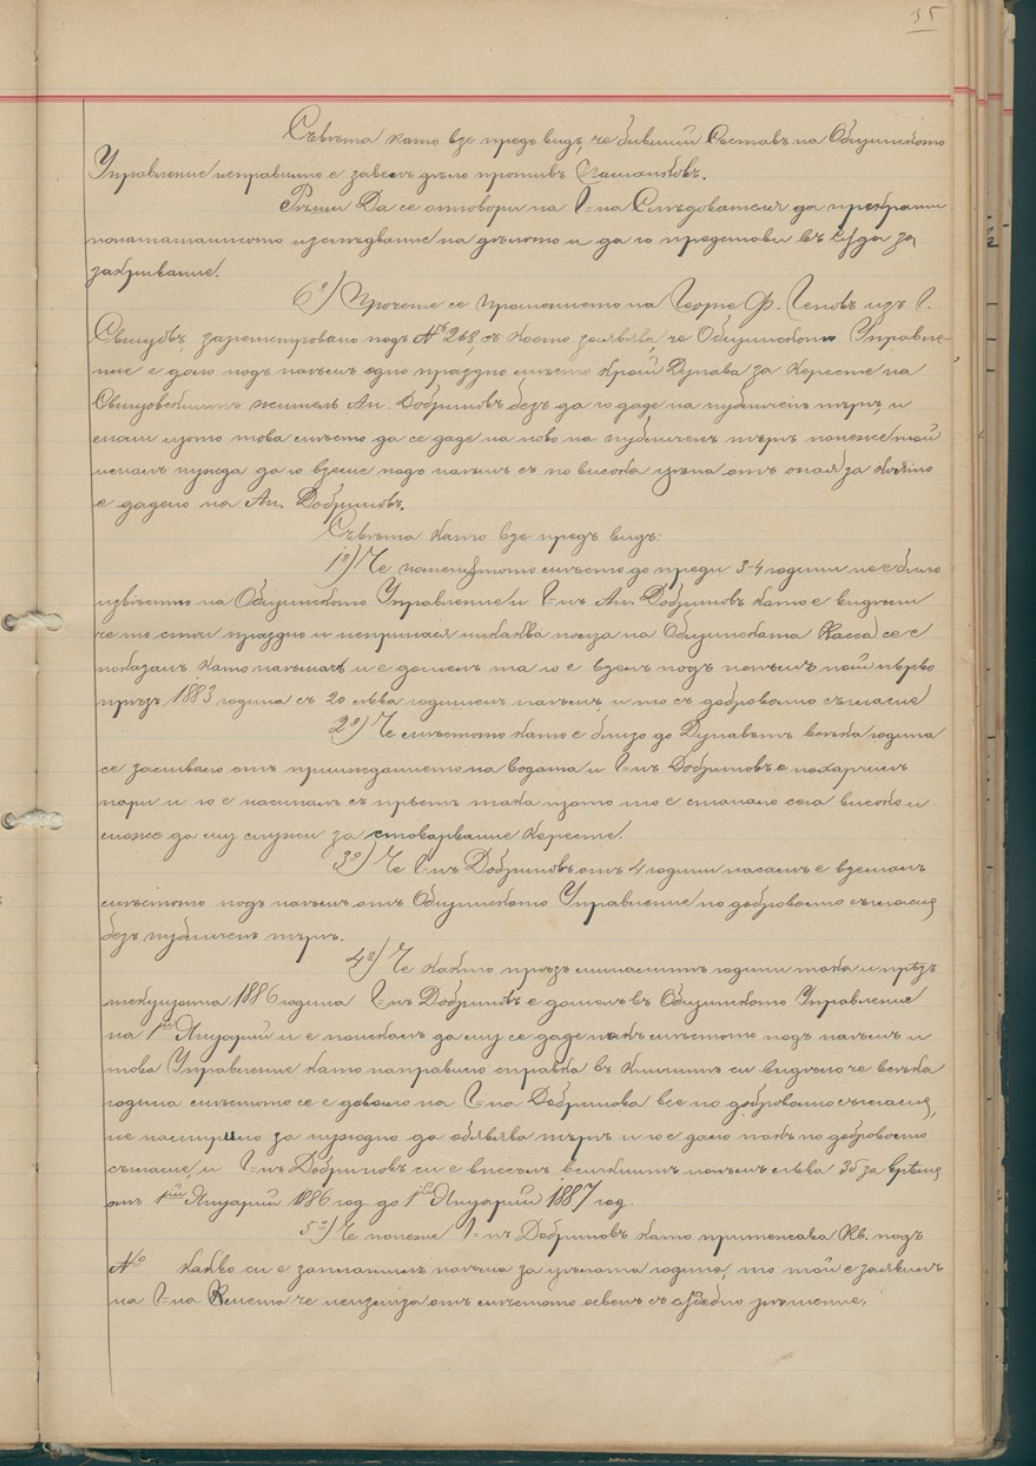 35
Съвѣта като взе предъ видъ, че бившии Съставъ на Общинското
Управление неправилно е завелъ дѣло противъ
Рѣши Да се отговори на Г-на Слѣдователя да прекрати
понататашното изслѣдвание на дѣлото и да го представи въ Съда за
закривание.
6º) Прочете се прошението на Георге Ф. Ценовъ изъ Г.
Свищовъ, зарегистровано подъ № 268, съ което заявлява, че Общинското Управле-
ние е дало подъ наемъ едно праздно мѣсто край Дунава за Кересте на
Свищовскиятъ жителъ Ан. Добриновъ безъ да го даде на публиченъ търгъ, и
моли щото това мѣсто да се даде на ново на публиченъ търгъ понеже той
ималъ нужда да го вземе подъ наемъ съ по висока цѣна отъ оная за която
е дадено на Ан. Добриновъ.
Съвѣта като взе предъ видъ:
1º) Че поменѫтото мѣсто до преди 3-4 години не е било
извѣстно на Общинското Управление и Г-нъ Ан. Добриновъ като е видѣлъ
че то стои праздно и непринася никаква полза на Общинската Касса се е
показалъ като наемателъ и е дошелъ та го е взелъ подъ наемъ най първо
прѣзъ 1883 година съ 20 лѣва годишенъ наемъ, и то съ доброволно съгласие
2º) Че мѣстото като е близо до Дунавътъ всѣка година
се засипвало отъ приижданието на водата и Г-нъ Добриновъ е похарчилъ
пари и го е насипалъ съ пръсть така щото то е станало сега високо и
може да му служи за стоварвание Кересте.
3º) Че Г-нъ Добриновъ отъ 4 години насамъ е взималъ
мѣстото подъ наемъ отъ Общинското Управление по доброволно съгласие
безъ публиченъ търгъ.
4º) Че както прѣзъ миналитѣ години така и прѣзъ
текущата 1886 година Г-нъ Добриновъ е дошелъ въ Общинското Управление
на 1ий Януарий и е поискалъ да му се даде пакъ мѣстото подъ наемъ и
това Управление като направило справка въ книгитѣ си видѣло че всѣка
година мѣстото се е давало на Г-на Добринова все по доброволно съгласие,
не намерило за нужно да обявлява търгъ и го е дало пакъ по доброволно
съгласие, и Г-нъ Добриновъ си е внесълъ всичкиятъ наемъ лѣва 36 за врѣме
отъ 1ий Януарий 1886 год. до 1ий Януарий 1887 год.
5º) Че понеже Г-нъ Добриновъ като притежава Кв. подъ
№ какво си е заплатилъ наема за цѣлата година, то той е заявилъ
на Г-на Кмета че неизлиза отъ мѣстото освенъ съ съдебно рѣшение,